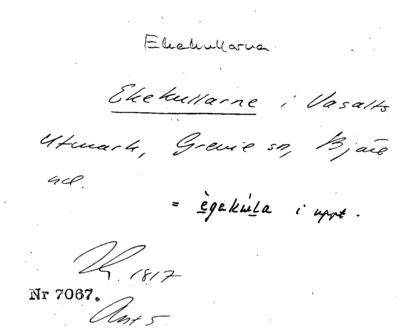 Ekekullarna
Ekekullarne i Vasalts
Utmark, Grevie sn, Bjäre
hd.
= ègakùla i uppt.
1817
Nr 7067.
Ant 5